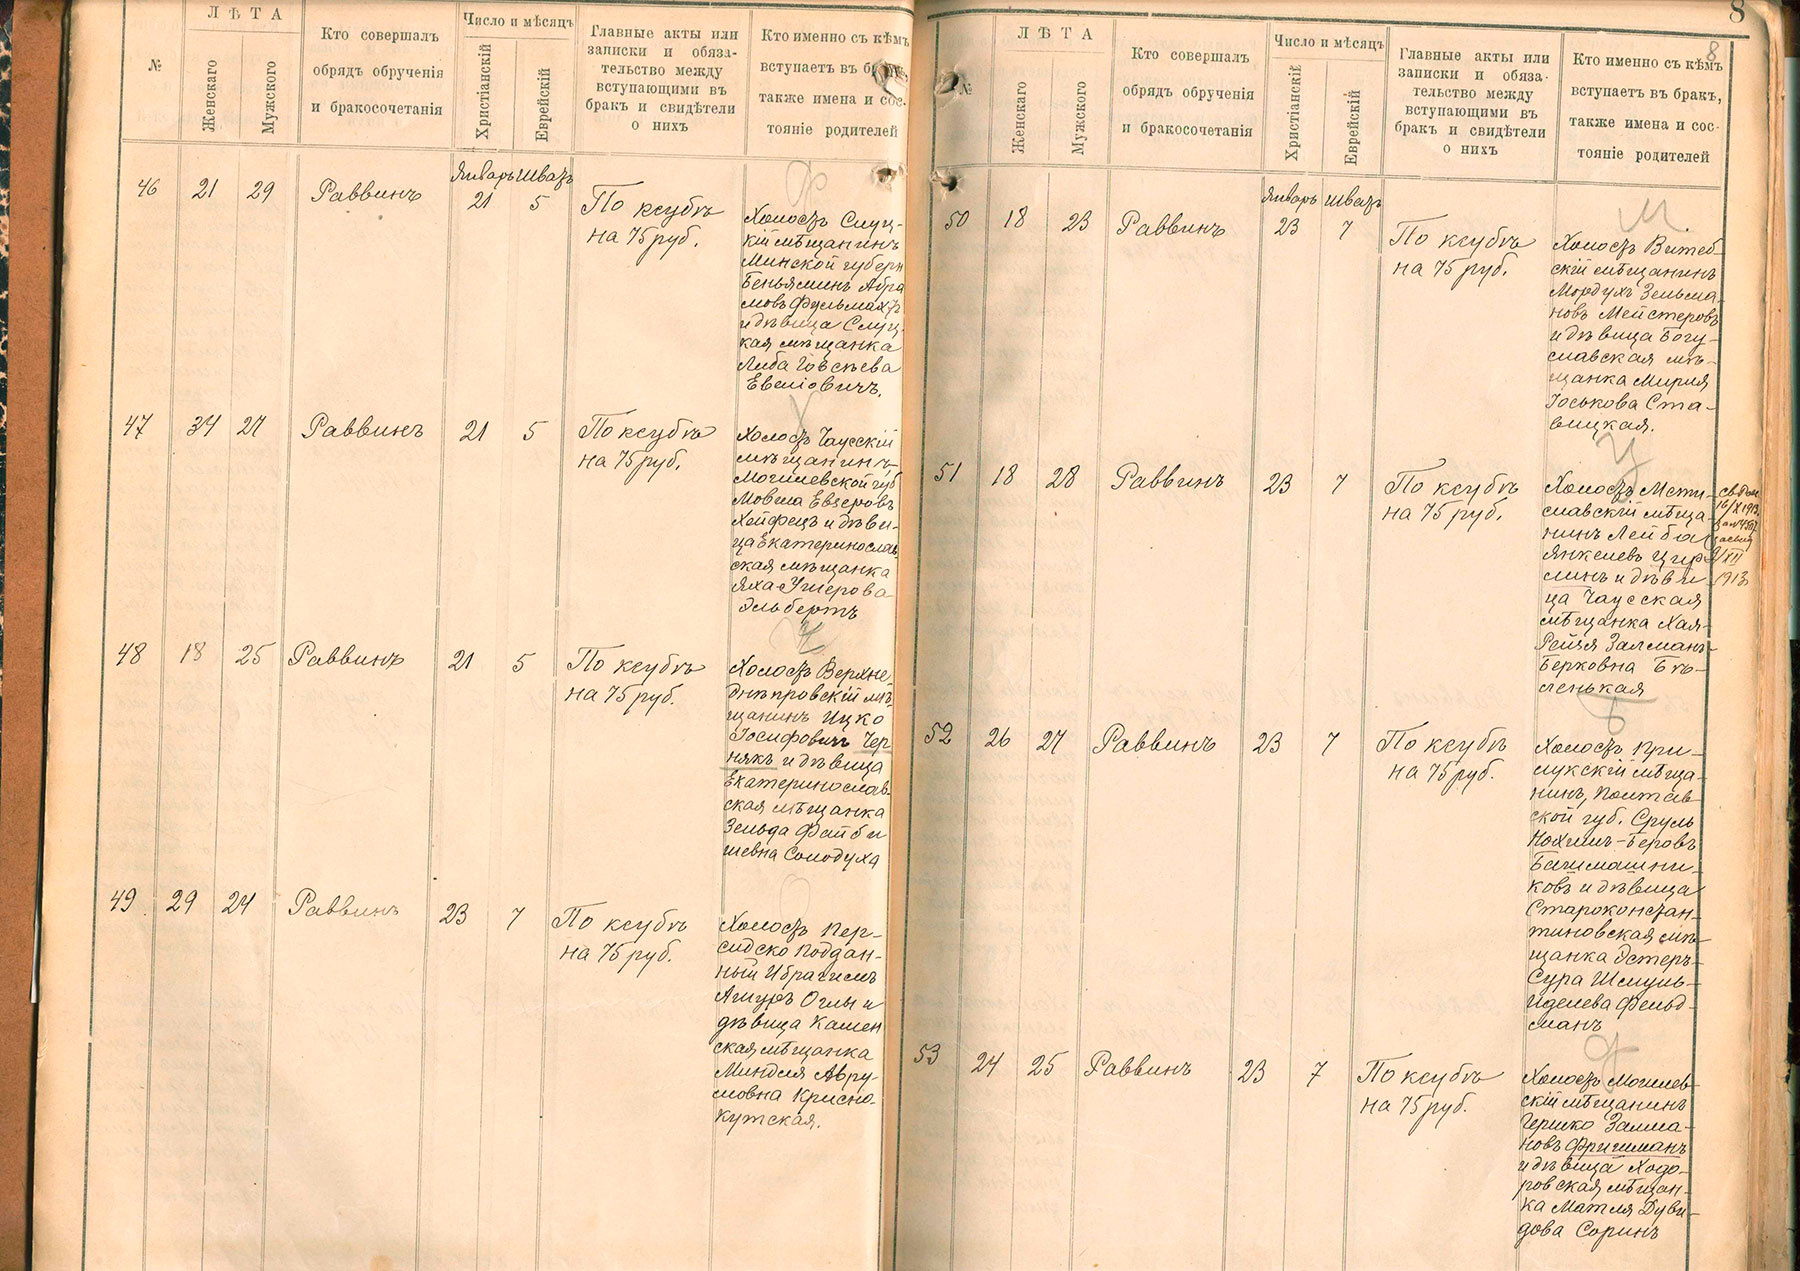 №
ЛѢТА
Женскаго
Мужского
Кто совершалъ
обрядъ обрученія
и бракосочетанія
Число и мѣсяцъ
Христіанскій
Еврейскій
Главные акты или
записки и обяза-
тельство между
вступающими въ
бракъ и свидѣтели
о нихъ
Кто именно съ кѣмъ
вступаетъ въ бракъ,
также имена и сос-
тояніе родителей
Январь Шватъ
46 21 29 Раввинъ 21 5 По ксубѣ
на 75 руб.
Ф
Холостъ Слуц-
кій мѣщанинъ
Минской губерн
Беньяминъ Абра
мовъ Фульмахтъ
и дѣвица Слуц
кая мѣщанка
Либа Іовсѣева
Евеліовичъ.
47 34 27 Раввинъ 21 5 По ксубѣ
на 75 руб.
Х
Холостъ Чаусскій
мѣщанинъ
Могилевской губ
Мовша Евзеровъ
Хейфецъ и дѣви-
ца Екатеринослав
ская мѣщанка
Яха Ушерова
Эльбертъ
48 18 25 Раввинъ 21 5 По ксубѣ
на 75 руб.
Ч
Холостъ Верхне-
днѣпровскій мѣ
щанинъ Ицко
Іосифовичъ Чер
някъ и дѣвица
Екатеринослав-
ская мѣщанка
Зельда Файби
шевна Солодуха
49 29 24 Раввинъ 23 7 По ксубѣ
на 75 руб.
О
Холостъ Пер-
сидско поддан-
ный Ибрагимъ
Ашуръ Оглы и
дѣвица Камен
ская мѣщанка
Миндля Авру-
мовна Красно-
кутская.
8
8
№
ЛѢТА
Женскаго
Мужского
Кто совершалъ
обрядъ обрученія
и бракосочетанія
Число и мѣсяцъ
Христіанскій
Еврейскій
Главные акты или
записки и обяза-
тельство между
вступающими въ
бракъ и свидѣтели
о нихъ
Кто именно съ кѣмъ
вступаетъ въ бракъ,
также имена и сос-
тояніе родителей
Январь Шватъ
50 18 23 Раввинъ 23 7 По ксубѣ
на 75 руб.
М
Холостъ Витеб-
скій мѣщанинъ
Мордухъ Зельма-
новъ Мейстеровъ
и дѣвица Богу-
славская мѣ-
щанка Мирля
Іоськова Ста-
вицкая.
51 18 28 Раввинъ 23 7 По ксубѣ
на 75 руб.
Ц
Холостъ Мсти-
славскій мѣща-
нинъ Лейба
Янкелевъ Цир
линъ и дѣви
ца Чаусская
мѣщанка Хая-
Рейзя Залманъ-
Берковна Бѣ-
ленькая
1913
52 26 27 Раввинъ 23 7 По ксубѣ
на 75 руб.
Б
Холостъ При-
лукскій мѣща-
нинъ, Полтав
ской губ. Сруль
Нохимъ-Беровъ
Башмашни-
ковъ и дѣвица
Староконстан-
тиновская мѣ-
щанка Эстеръ-
Сура Шмуль-
Иделева Фельд-
манъ
53 24 25 Раввинъ 23 7 По ксубѣ
на 75 руб.
Ф
Холостъ Могилев-
скій мѣщанинъ
Гершко Залма-
новъ Фришманъ
и дѣвица Ходо-
ровская мѣщан-
ка Матля Дуви-
дова Соринъ